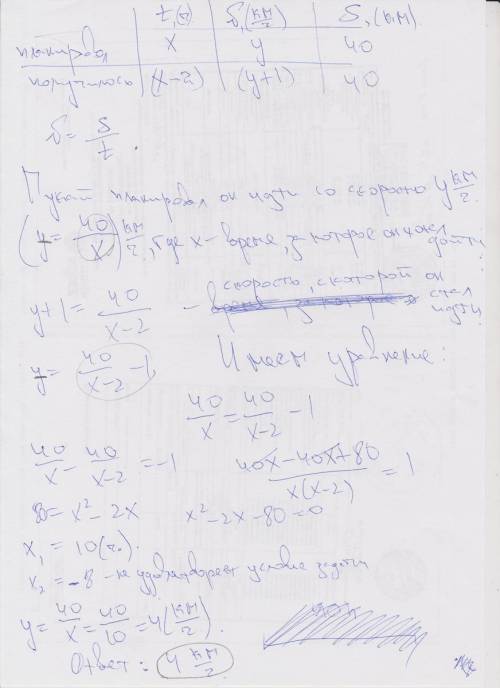 t,(ч) v,(км/ч) S,(км)
планировал x y 40
получилось (x-2) (y+1) 40
v = S/t.
Пускай планировал он идти со скоростью y км/ч.
(y = 40/x) км/ч, где x - время, за которое он хотел дойти
y+1 = 40/(x-2) - скорость, с которой он стал идти
y = 40/(x-2) - 1 Имеем уравнение:
40/x = 40/(x-2) - 1
40/x - 40/(x-2) = -1 (40x - 40x + 80)/(x(x-2)) = 1
80 = x² - 2x x² - 2x - 80 = 0
x₁ = 10(ч).
x₂ = -8 - не удовлетворяет условие задачи
y = 40/x = 40/10 = 4(км/ч).
Ответ: 4 км/ч